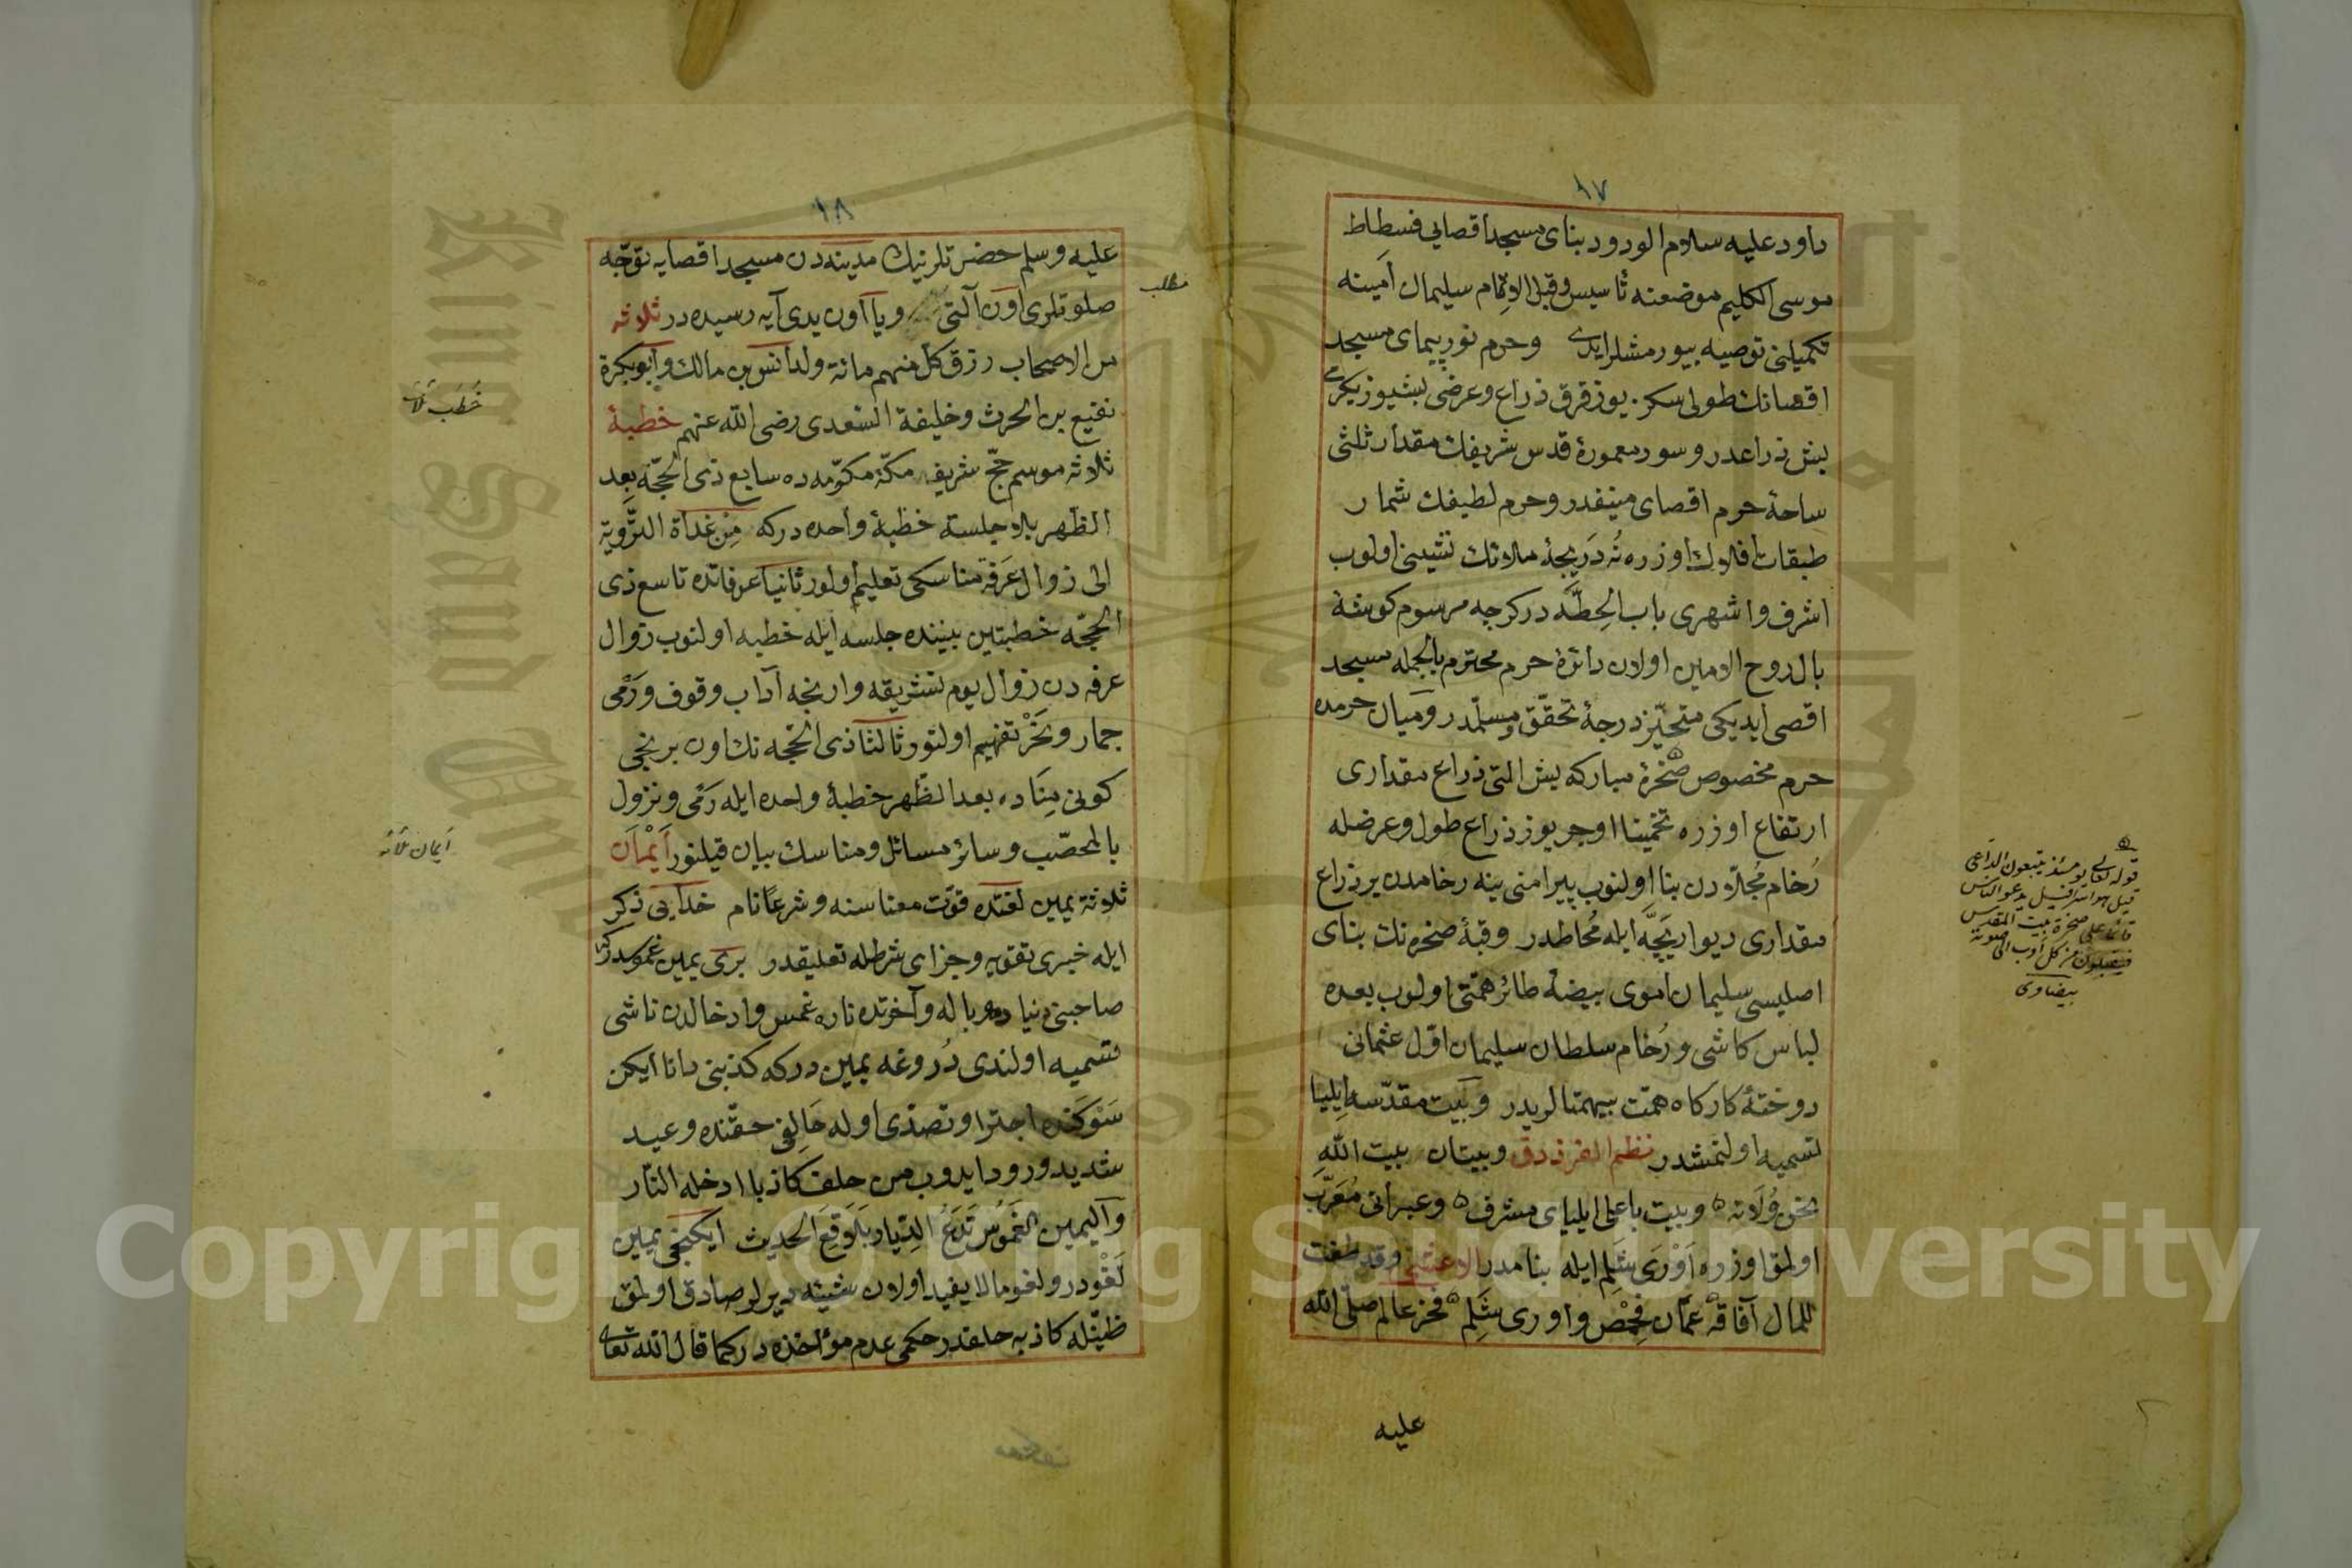 ١٧
داود عليه سلام الودود بناى مسجد اقصايى فسطاط
موسى الكليم موضعنه تأسيس وقبل الاتمام سليمان امينه
تكميلنى توصيه بيورمشلرايدى وحرم نورپيماى مسجد
اقصانك طولى سكز يوز قرق ذراع وعرضى بشيوز يكرمى
بش ذراعدر وسور معمورۀ قدس شريفك مقدار ثلثى
ساحۀ حرم اقصاى منيفدر وحرم لطيفك شمار
طبقات افلاك اوزره نُه دريچۀ ملائك نشيمنى اولوب
اشرف واشهرى باب الحِطَّه در كرچه مرسوم كوشۀ
بال روح الامين اولان دائرۀ حرم محترم بالجمله مسجد
اقصى ايديكى متحيّز درجۀ تحقّق ومسلّمدر وميان حرمده
حرم مخصوص صخرۀ مباركه بش التى ذراع مقدارى
ارتفاع اوزره تخمينا اوچر يوز ذراع طول وعرضله
رُخام مُجلّادن بنا اولنوب پيرامنى ينه رخامدن بر ذراع
مقدارى ديوارچَّه ايله مُحاطدر وقبۀ صخره نك بناى
اصليسى سليمان اموى بيضۀ طائر همتى اولوب بعده
لباس كاشى ورُخام سلطان سليمان اوّل عثمانى
دوختۀ كاركاه همّت بيهمتالريدر وبيت مقدّسه ايليا
تسميه اولنمشدر نظم الفرزدق وبيتان بيت الله
نحن وُلاته ه وبيت باعلى ايلياى مشرف ه وعبرانى مُعَرَّب
اولمق اوزره اَوْرَى شَلِم ايله بنامدر الاعشى وقد طفت
للمال آفاقه عمان فحمص واورى شَلِم ه فخر عالم صلّى الله
عليه
ه
قوله تعالى يومئذ يتبعون الداعى
قيل هو اسرافيل يدعو الناس
قائما على صخرة بيت المقدس
فيقبلون من كل اوب الى صوته
بيضاوى
١٨
مطلب
عليه وسلم حضرتلرينك مدينه دن مسجد اقصايه توجّه
صلوتلرى اون آلتى ويا اون يدى آيه رسيده در ثلاثه
من الاصحاب رزق كل منهم مائة ولد انس بن مالك وابوبكرة
نفيع بن الحرث وخليفة السعدى رضى الله عنهم خطبۀ
ثلاثه موسم حجّ شريفه مكّۀ مكرّمه ده سابع ذى الحجّه بعد
الظهر بلا جلسة خطبۀ واحده دركه مِنْ غداة التَّروية
الى زوال عَرَفه مناسكى تعليم اولور ثانيا عرفاتده تاسع ذى
الحجّه خطبتين بيننده جلسه ايله خطبه اولنوب زوال
عرفه دن زوال يوم تشريقه وارنجه آداب وقوف ورَمى
جمار ونَحْر تفهيم اولنور ثالثا ذى الحجّه نك اون برنجى
كونى مِنَاده بعد الظهر خطبۀ واحده ايله رَمى ونزول
بالمحصّب وسائر مسائل ومناسك بيان قيلنور اَيْمان
ثلاثة يمين لغتده قوّت معناسنه وشرعًا نام خدايى ذكر
ايله خبرى تقويه وجزاى شرطله تعليقدر برى يمين غموسدركه
صاحبنى دنياده وباله وآخرتده ناره غمس وادخالدن ناشى
تسميه اولندى دُروغه يمين دركه كذبنى دانا ايكن
سَوْكَنده اجترا وتصدّى اوله حَالِفى حقّنده وعيد
شديد ورود ايدوب من حلف كاذبا ادخله النّار
واليمين الغَمُوس تَدَعُ الدِّيار بَلاقِعَ الحديث ايكنجى يمين
لَغْودر ولغو مالا يفيد اولان شيئه ديرلر صادق اولمق
ظنّيله كاذبه حلفدر حكمى عدم مؤاخذه در كما قال الله تعالى
خُطَب ثلاث
اَيمان ثلاثه
Copyright © King Saud University